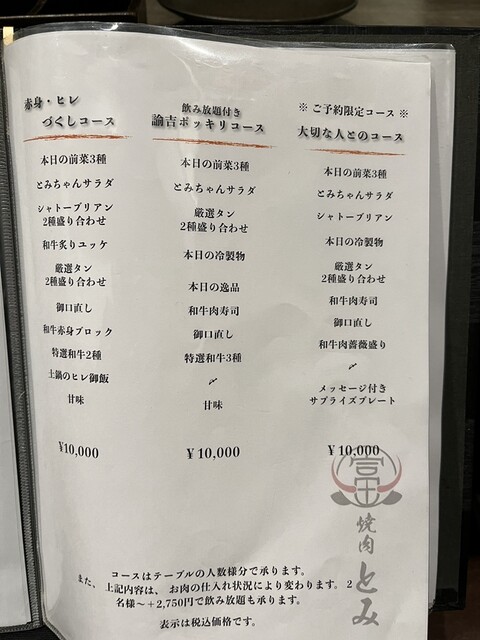 赤身・ヒレ
づくしコース
本日の前菜3種
とみちゃんサラダ
シャトーブリアン
2種盛り合わせ
和牛炙りユッケ
厳選タン
2種盛り合わせ
御口直し
和牛赤身ブロック
特選和牛2種
土鍋のヒレ御飯
甘味
¥10,000
飲み放題付き
諭吉ポッキリコース
本日の前菜3種
とみちゃんサラダ
厳選タン
2種盛り合わせ
本日の冷製物
本日の逸品
和牛肉寿司
御口直し
特選和牛3種
〆
甘味
¥10,000
※ ご予約限定コース ※
大切な人とのコース
本日の前菜3種
とみちゃんサラダ
シャトーブリアン
本日の冷製物
厳選タン
2種盛り合わせ
和牛肉寿司
御口直し
和牛肉薔薇盛り
〆
メッセージ付き
サプライズプレート
¥10,000
富
焼肉とみ
コースはテーブルの人数様分で承ります。
また、上記内容は、お肉の仕入れ状況により変わります。2
名様～＋2,750円で飲み放題も承ります。
表示は税込価格です。